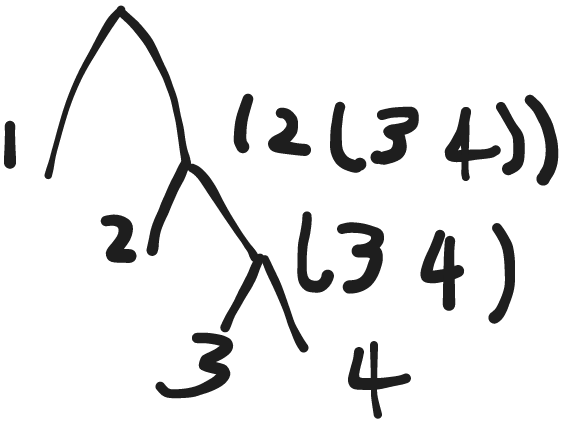 1
(2(3 4))
2
(3 4)
3
4